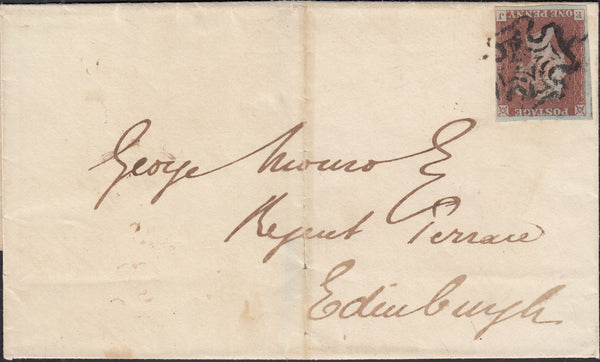 E ONE PENNY J
POSTAGE
George Monro E
Regent Terrace
Edinburgh